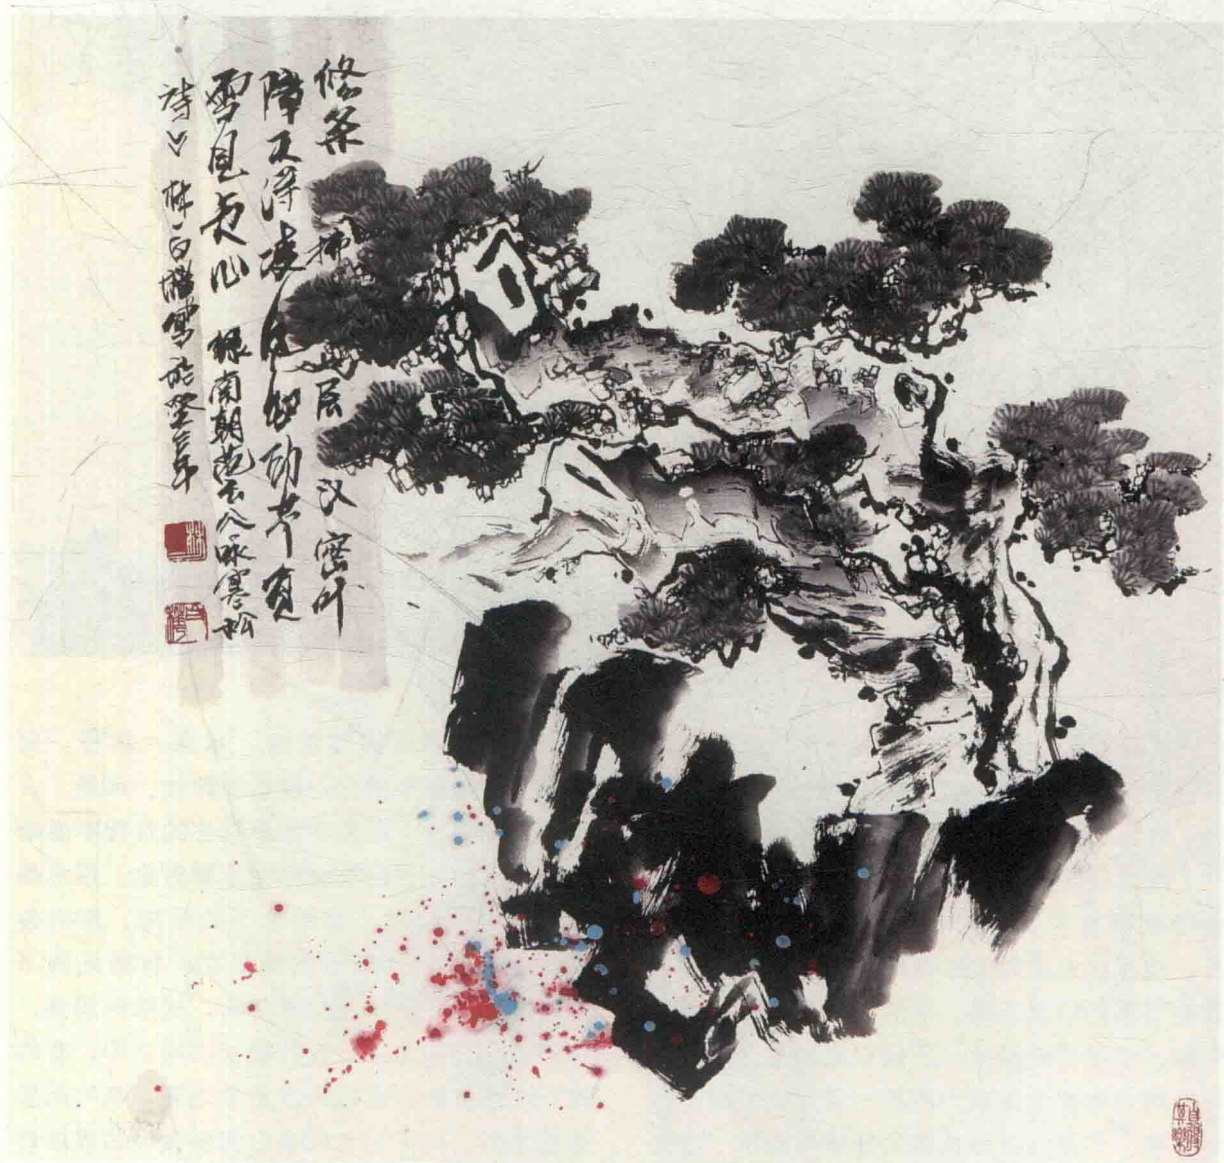 修条拂层汉密叶
障天浔凌风知劲节负
雪见贞心 录南朝范云咏寒松
诗 林 写於年